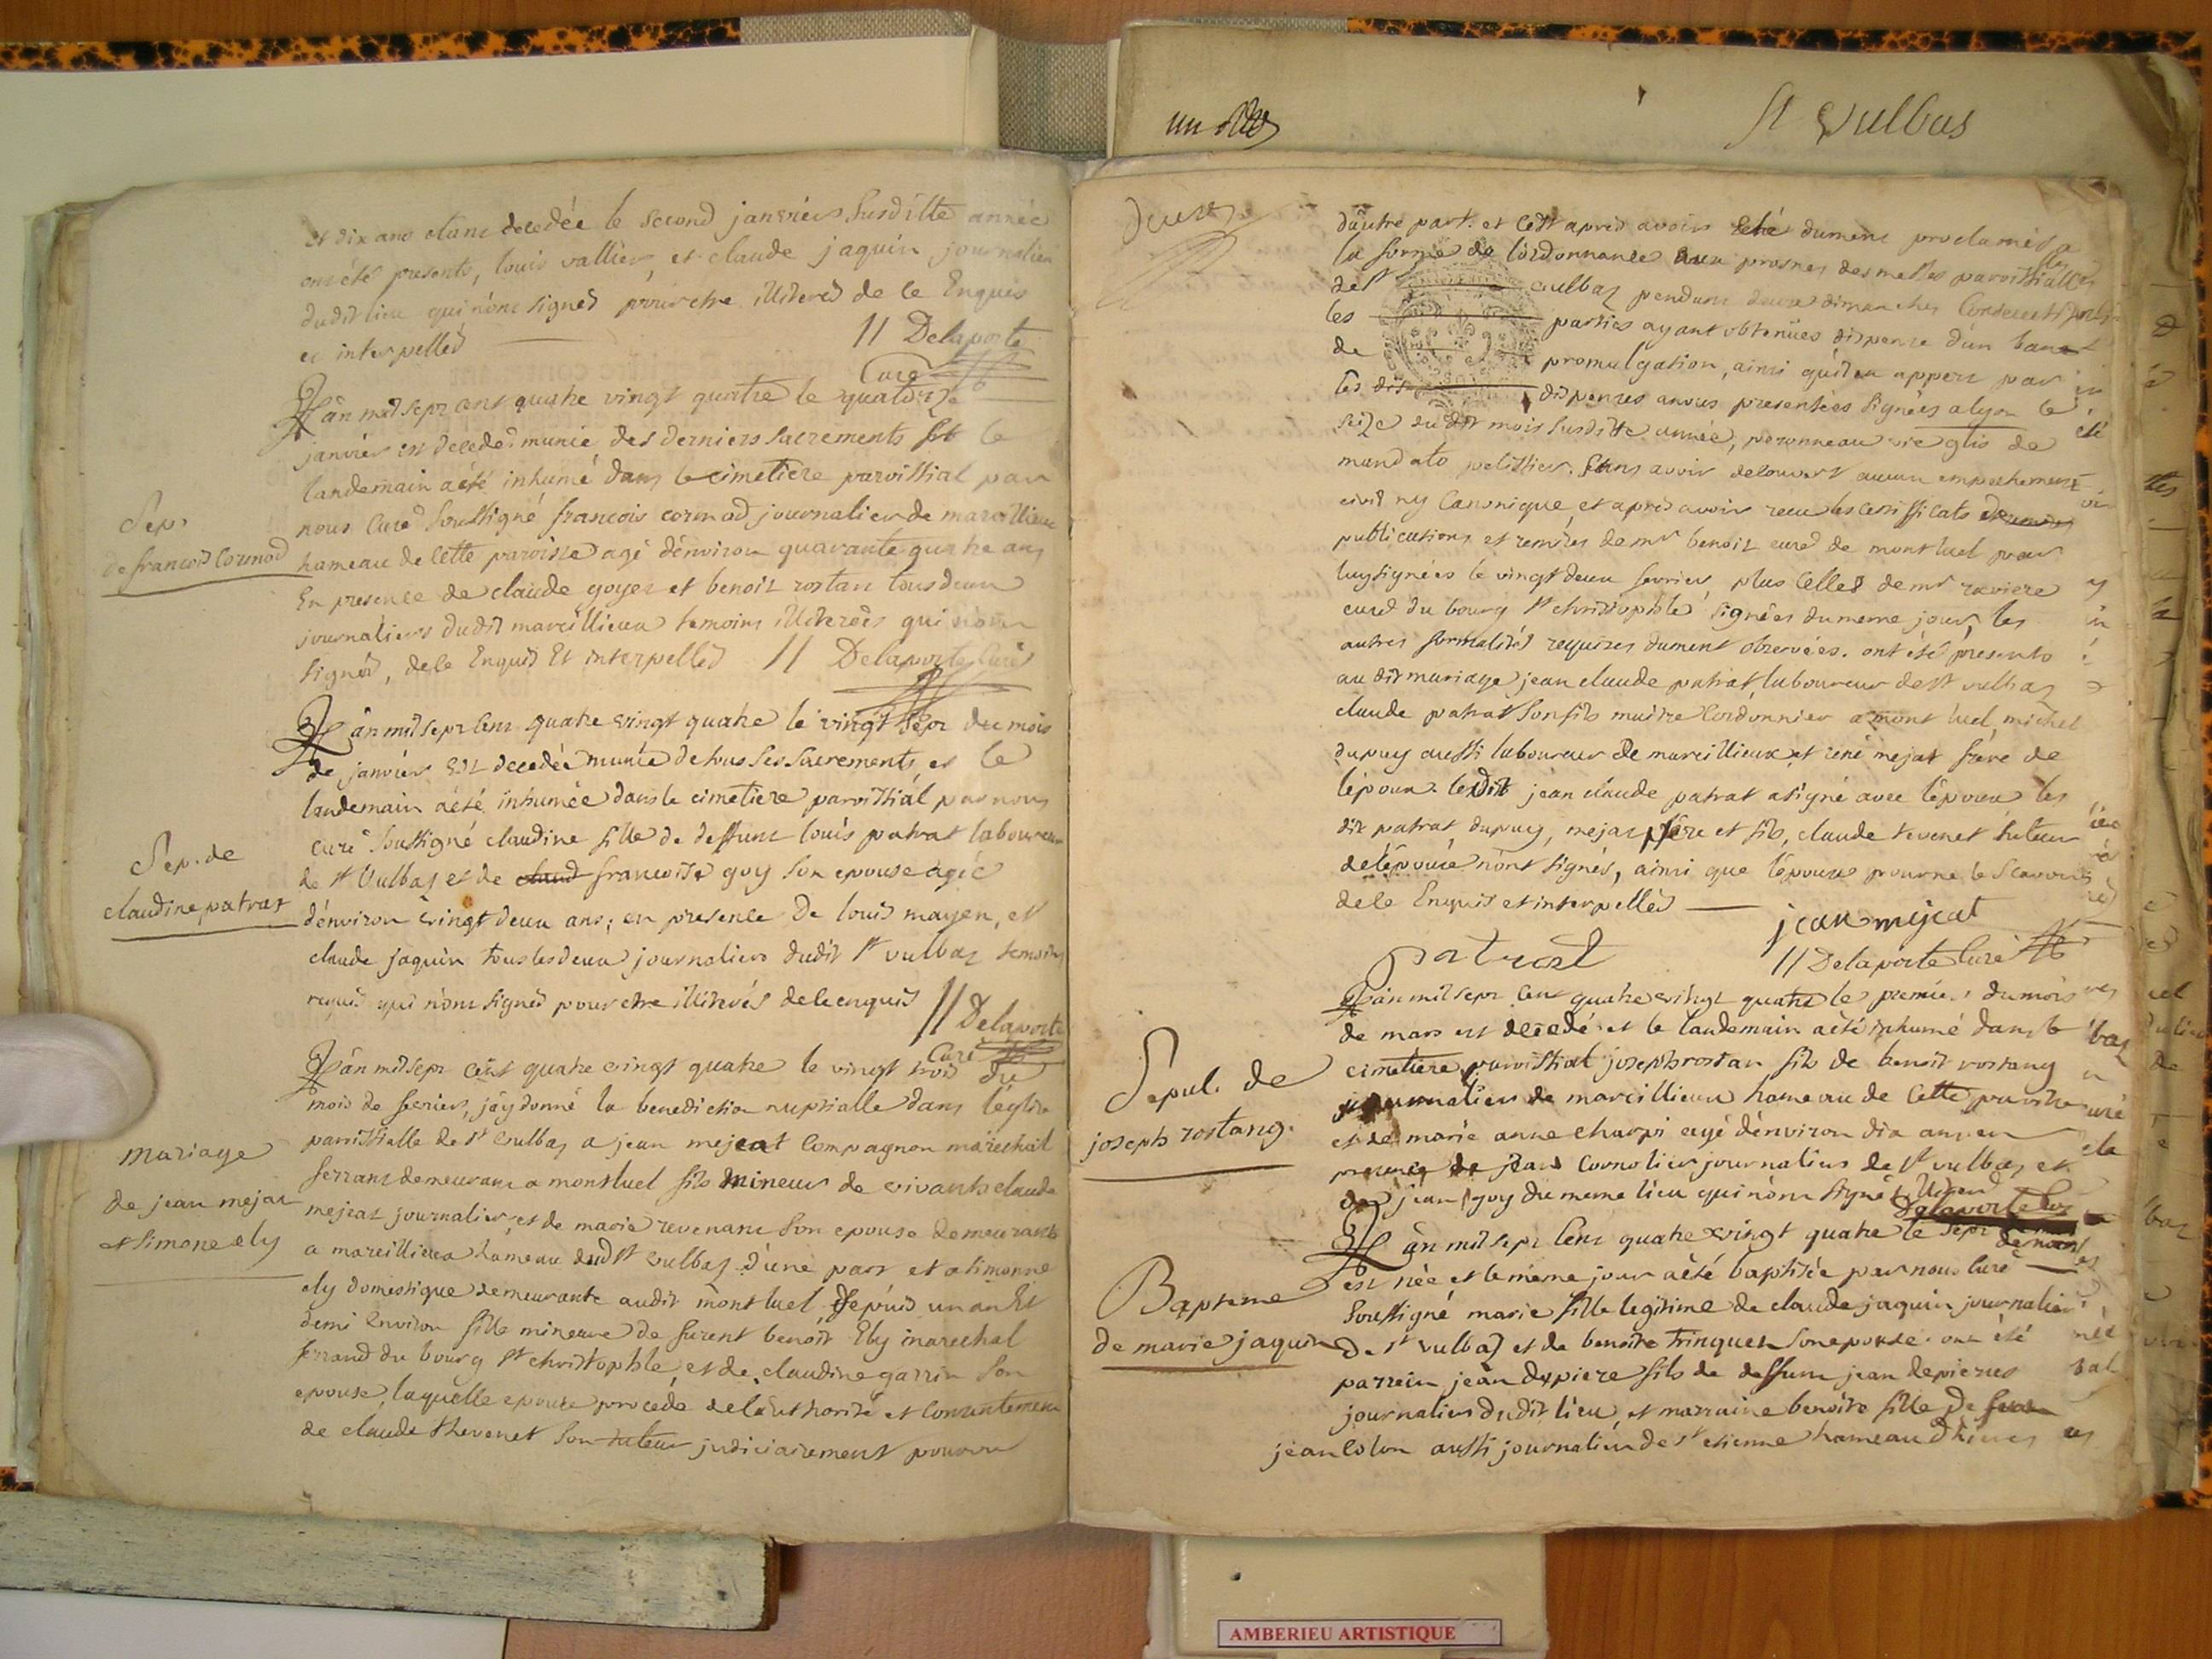 St Vulbas
et dix ans etant decedée le second janvier susditte année
ont été presents, louis vallier, et claude jaquin journalier
dudit lieu qui n'ont signés pour etre illiterés de ce Enquis
et interpellés
// Delaporte
Curé
L'an mil sept cent quatre vingt quatre le quatorze
janvier est decedé munie des derniers sacrements et le
landemain a été inhumé dans le cimetiere paroissial par
nous Curé soussigné francois cormod journalier de marcillieux
Sep.
de francois Cormod
hameau de Cette paroisse agé d'environ quarante quatre ans
En presence de claude goyet et benoit rostan tous deux
journaliers dudit marcillieux temoins illiterés qui n'ont
signés, de ce Enquis Et interpellés // Delaporte Curé
L'an mil sept cent quatre vingt quatre le vingt sept du mois
de janvier est decedée munie de tous ses sacrements et le
landemain a été inhumée dans le cimetiere paroissial par nous
curé soussigné claudine fille de deffunt louis patrat laboureur
Sep. de
claudine patrat
de st Vulbas et de francoise goy son epouse agée
d'environ vingt deux ans; en presence De louis mayen, et
claude jaquin tous les deux journaliers dudit st vulbas temoins
requis qui n'ont signés pour etre illiterés de ce enquis
// Delaporte
Curé
L'an mil sept cent quatre vingt quatre le vingt trois du
mois de fevrier, j'ay donné la benediction nuptialle dans l'eglise
paroissialle de st vulbas a jean mejeat Compagnon marechal
mariage
de jean mejat
et simone ely
ferrant demeurant a montluel fils mineur de vivants claude
mejeat journalier et de marie revenant son epouse demeurants
a marcillieux hameau dud st vulbas d'une part et a simonne
ely domestique demeurante audit montluel depuis un an Et
demi Environ fille mineure de furent benoit Ely marechal
ferrand du bourg st christophle, et de claudine garrin son
epouse, laquelle epouse procede de l'authorité et Consentement
de claude thevenet son tuteur judiciairement pourvu
deux
d'autre part. et cest apres avoir eté dument proclamés a
la forme de l'ordonnance aux prosnes des messes paroissialles
de st vulbas pendant deux dimanches Consecutifs
les parties ayant obtenües dispense d'un banc
de promulgation, ainsi qu'il en appert par
les dites dispenses a nous presentées signées a lyon le
seize dudit mois susditte année, peronneau vic glis de
mandato pelissier. sans avoir decouvert aucun empechement
civil ny Canonique, et apres avoir recu les certifficats
publications et remises de mr benoit curé de montluel par
luy signées le vingt deux fevrier, plus celles de mr raviere
curé du bourg st christophle signées du meme jour, les
autres formalités requises dument observées. ont été presents
au dit mariage jean claude patrat laboureur de st vulbas
claude patrat son fils maitre Cordonnier a montluel, michel
dupuy aussi laboureur de marcillieux et rené mejat frere de
l'epoux. ledit jean claude patrat a signé avec l'epoux les
dit patrat dupuy, mejat pere et fils, claude tevenet tuteur
de l'epouse n'ont signés, ainsi que l'epouse pour ne le scavoir
de ce Enquis et interpellés
jean mejeat
patrat
// Delaporte Curé
L'an mil sept cent quatre vingt quatre le premier du mois
de mars est decedé et le landemain a été inhumé dans le
Sepul. de
joseph rostang.
cimetiere paroissial joseph rostan fils de benoit rostang
journalier de marcillieux hameau de Cette paroisse
et de marie anne charpi agé d'environ dix ans en
presence de jean Cornolier journalier de st vulbas, et
de jean goy du meme lieu qui n'ont signés
Delaporte Curé
L'an mil sept cent quatre vingt quatre le sept
de mars
est née et le meme jour a été baptisée par nous Curé
Bapteme
de marie jaquin
soussigné marie fille legitime de claude jaquin journalier
de st vulbas et de benoite trinquet son epouse. ont été
parrein jean depiere fils de deffunt jean depierres
journalier dudit lieu, et marraine benoite fille de
jean Colon aussi journalier de st etienne hameau d'hieres
AMBERIEU ARTISTIQUE